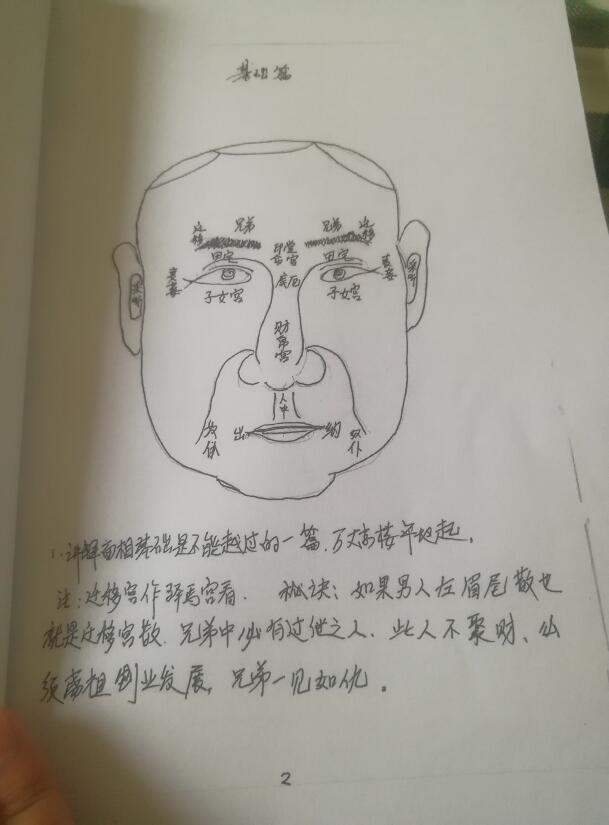 基础篇
迁移 兄弟 兄弟 迁移
印堂
命宫
田宅 田宅
疾厄
妻妾 妻妾
子女宫 子女宫
采听 采听
财帛宫
人中
奴仆 出 纳 奴仆
1.讲解面相基础是不能越过的一篇.万丈高楼平地起。
注:迁移宫作驿马宫看. 秘诀:如果男人左眉尾散也
就是迁移宫散.兄弟中必有过继之人.此人不聚财、必
须离祖创业发展,兄弟一见如仇。
2